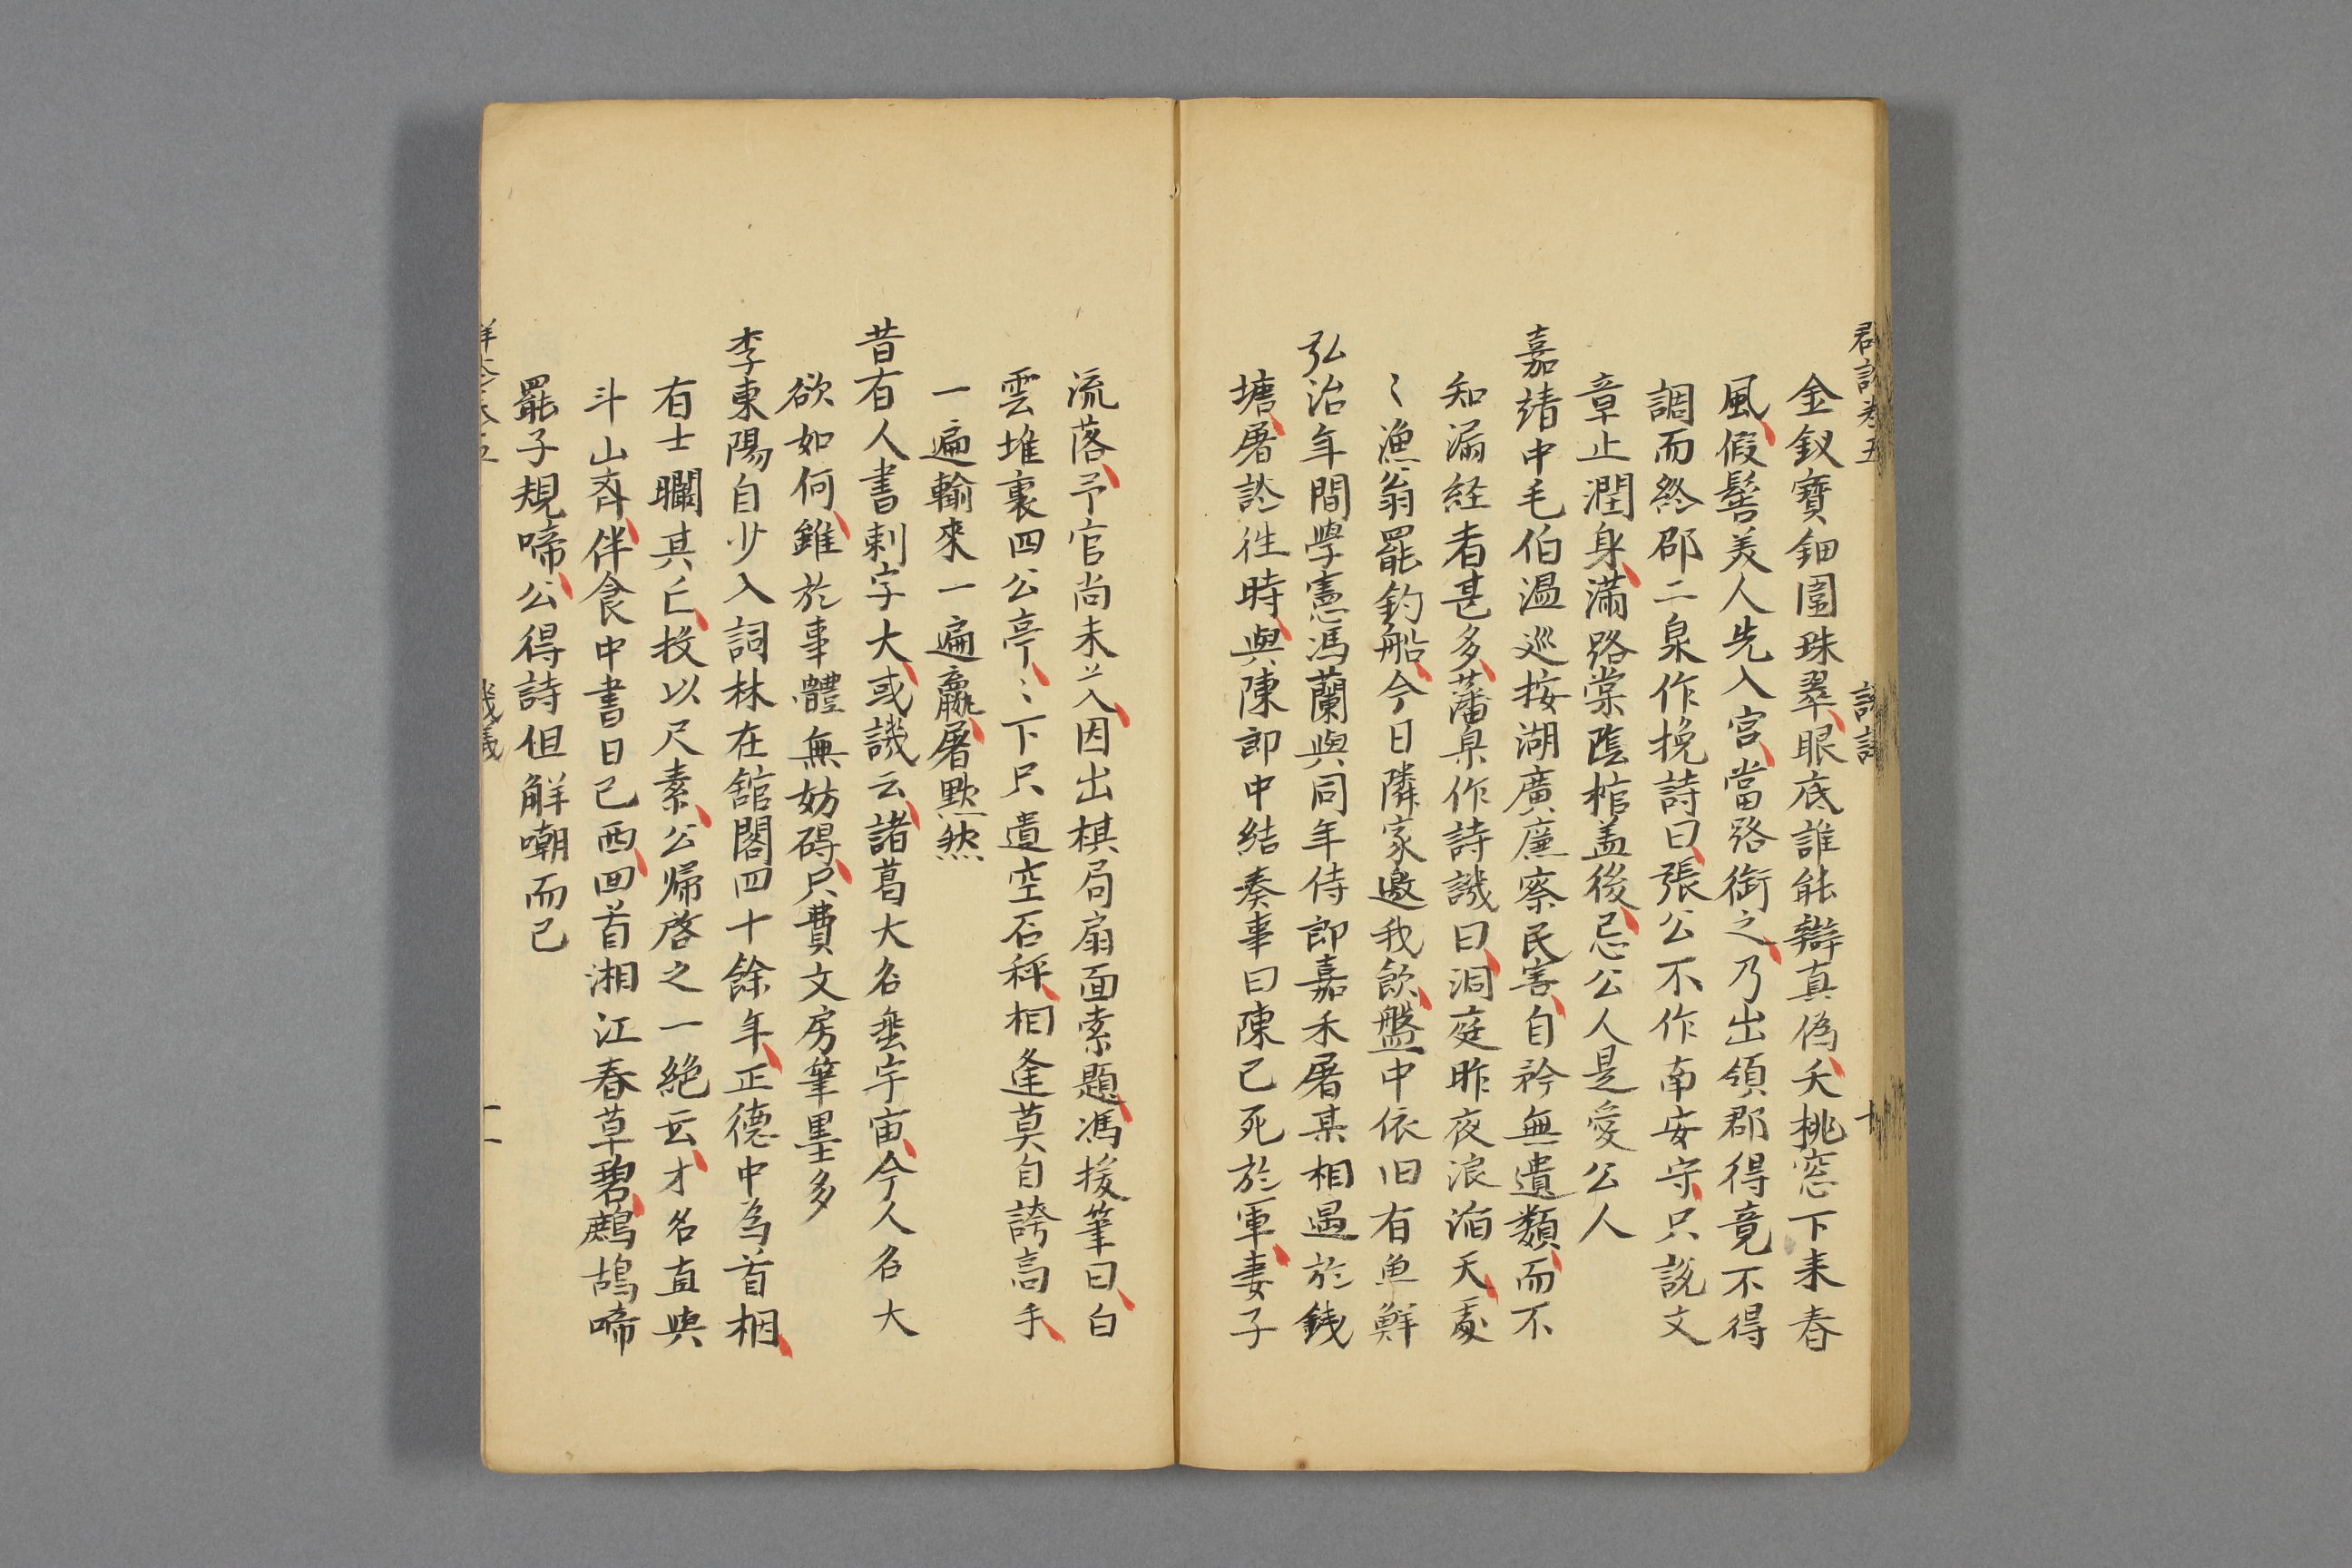 金釵寶鈿圍珠翠眼底誰能辯真偽夭桃窓下来春
風假髻美人先入宮當路銜之乃出領郡得竟不得
調而終邵二泉作挽詩曰張公不作南安守只説文
章止潤身滿路棠陰棺盖後忌公人是愛公人
嘉靖中毛伯温巡按湖廣廉察民害自矜無遺類而不
知漏経者甚多藩臬作詩譏曰洞庭昨夜浪滔天處
〻漁翁罷釣船今日隣家邀我飲盤中依旧有魚鮮
弘治年間學憲馮蘭與同年侍郎嘉禾屠某相遇於錢
塘屠訟徃時與陳郎中結奏事曰陳已死於軍妻子
流落予官尚未亡入因出棋局扇面索題馮援筆曰白
雲堆裏四公亭〻下只遺空石枰相逢莫自誇高手
一遍輸來一遍贏屠默然
昔有人書刺字大或譏云諸葛大名垂宇宙今人名大
欲如何雖於事體無妨碍只費文房筆墨多
李東陽自少入詞林在舘閣四十餘年正德中為首相
有士矙其亡投以尺素公歸啓之一絶云才名直與
斗山齊伴食中書日已西囬首湘江春草碧鷓鴣啼
罷子規啼公得詩但解嘲而已